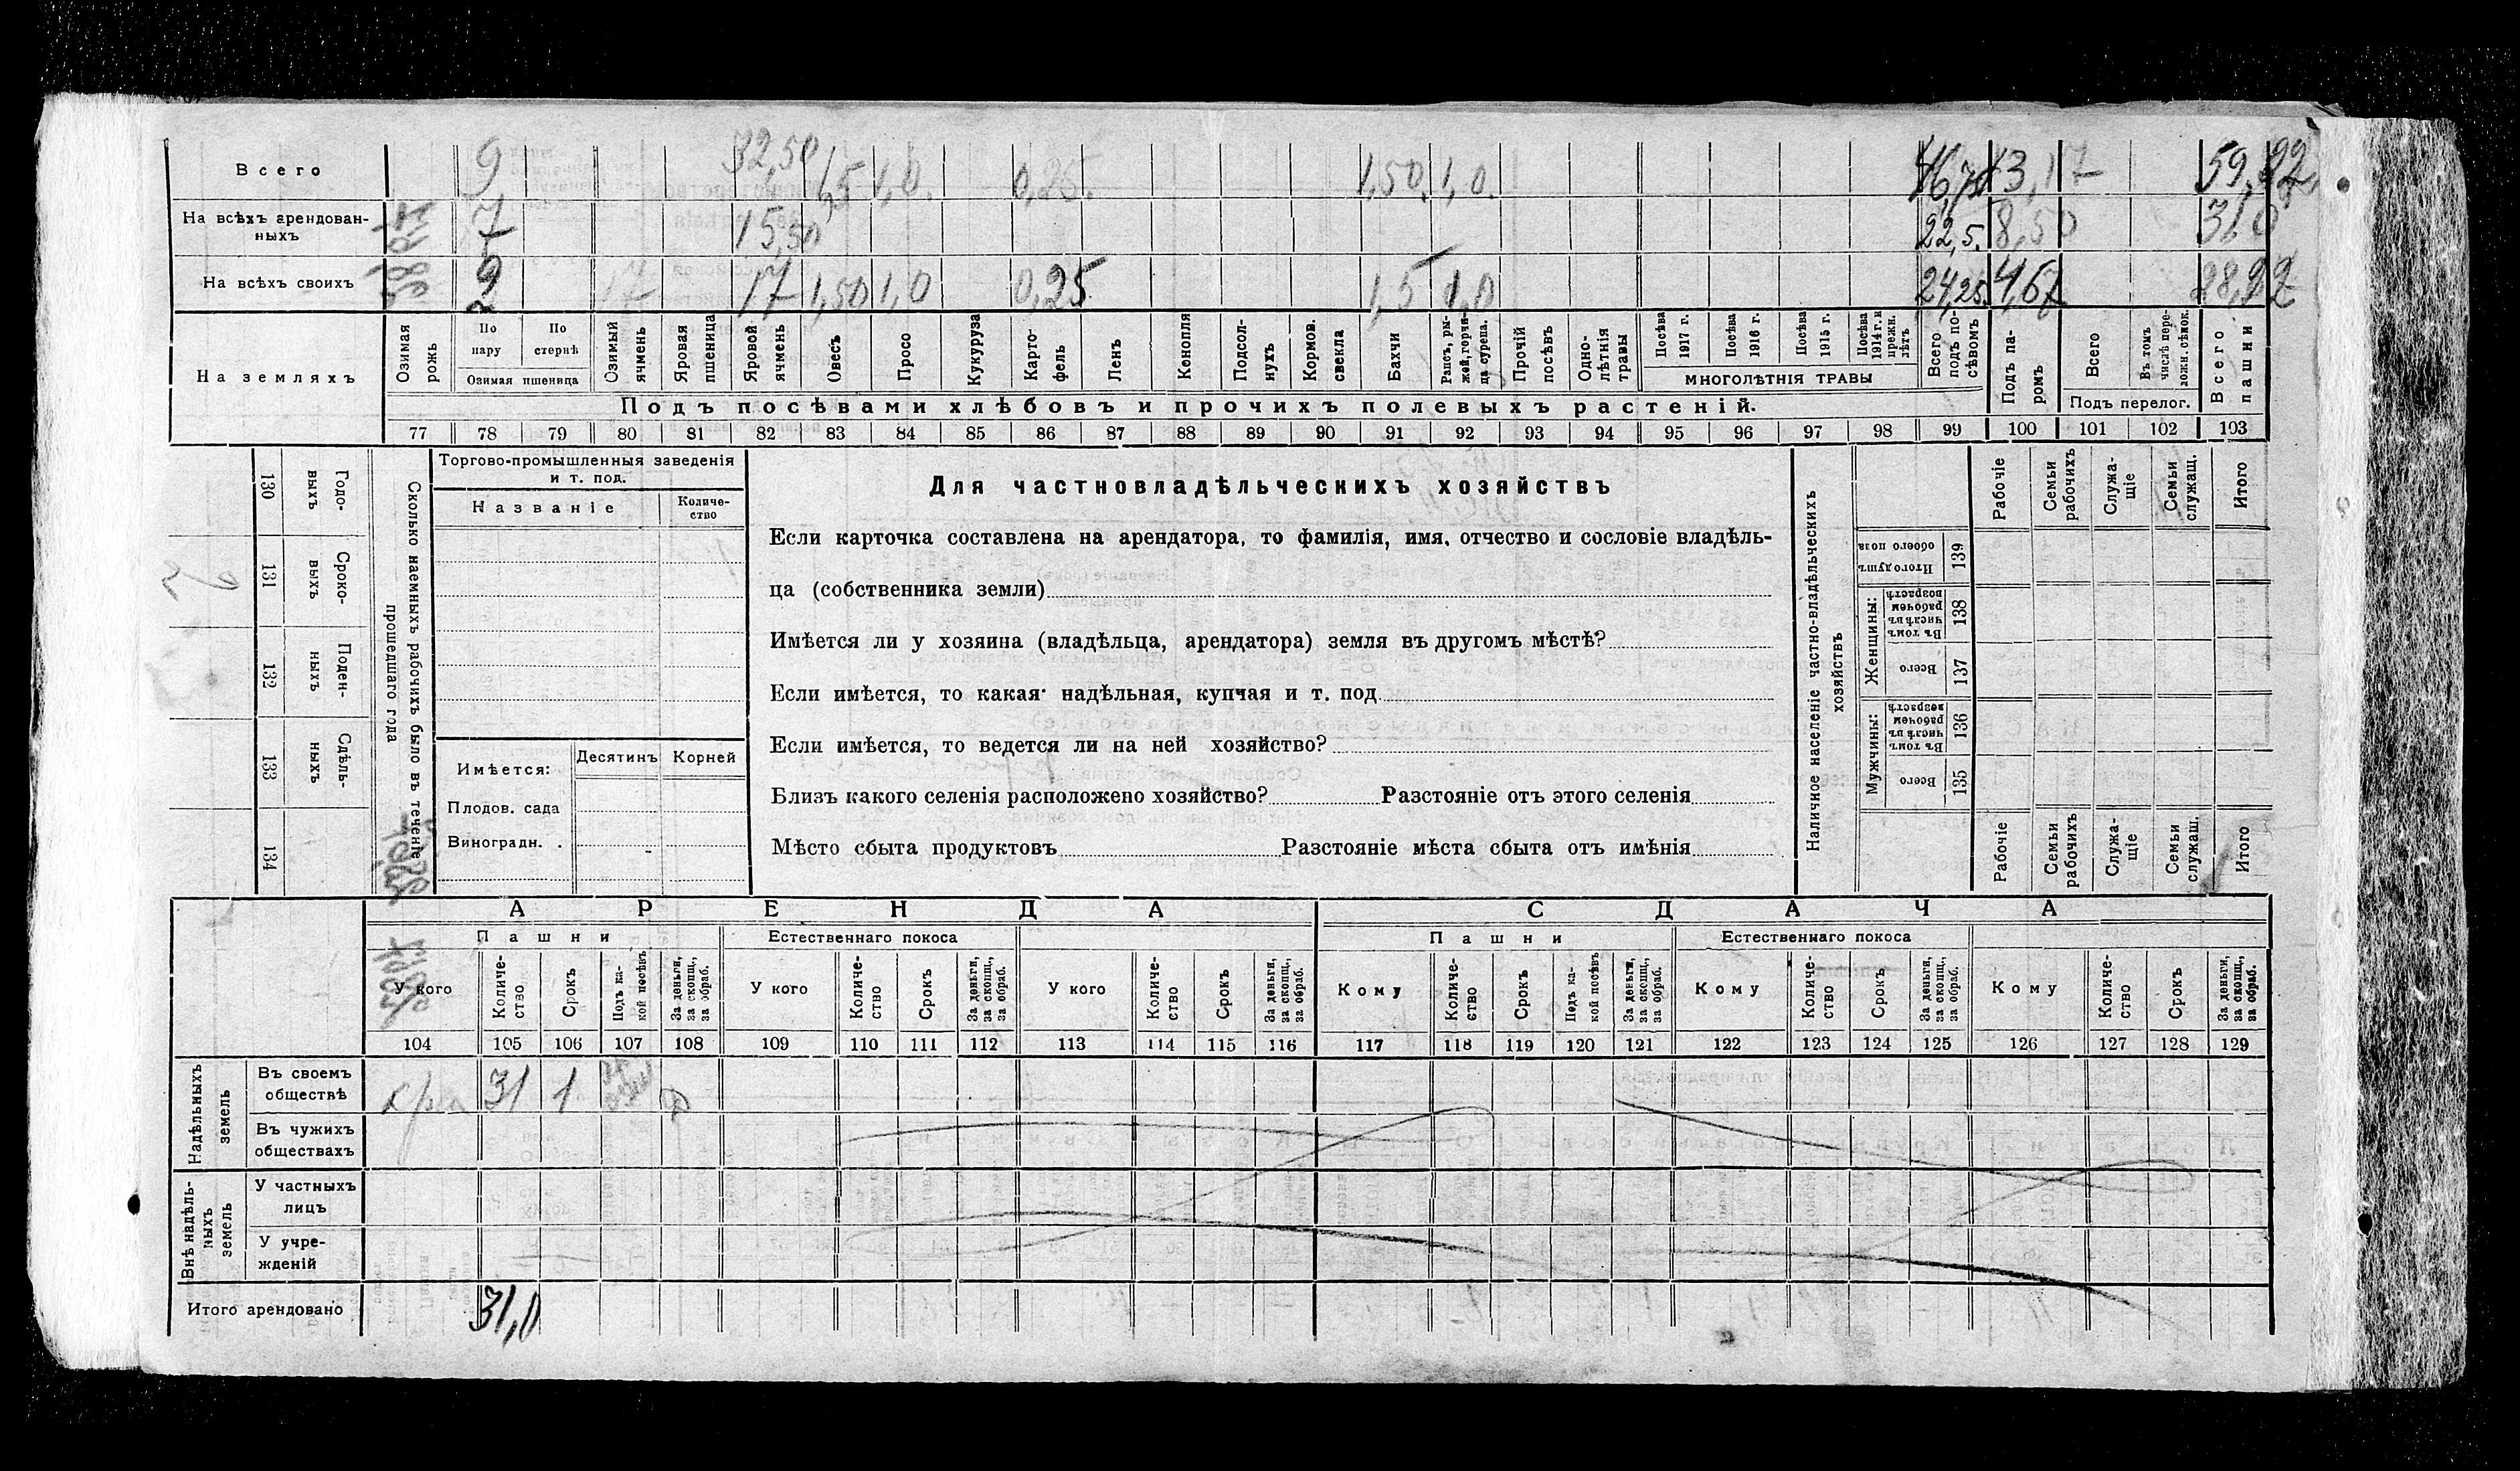 Всего 9, 32,50 1,5 1,0. 0,25. 1,50. 1,0. 46,75 13,17 59,92
На всѣхъ арендован-
ныхъ 7 15,50 22,5. 8,50 31,0
На всѣхъ своихъ 2 17 1,50 1,0 0,25 1,5 1,0 24,25. 4,67 28,92
На земляхъ
Озимая рожь
По пару
По стернѣ
Озимая пшеница
Озимый ячмень
Яровая пшеница
Яровой ячмень
Овесъ
Просо
Кукуруза
Карто-
фель
Ленъ
Конопля
Подсол-
нухъ
Кормов.
свекла
Бахчи
Рапсъ, ры-
жей, горчи-
ца сурепа.
Прочій
посѣвъ
Одно-
лѣтнія
травы
Посѣва
1917 г.
Посѣва
1916 г.
Посѣва
1915 г.
Посѣва
1914 г. и
прежн.
лѣтъ
МНОГОЛѢТНІЯ ТРАВЫ
Всего
подъ по-
сѣвомъ
Подъ па-
ромъ
Всего
Въ томъ
числѣ пере-
ложн. сѣнок.
Подъ перелог.
Всего
пашни
Подъ посѣвами хлѣбовъ и прочихъ полевыхъ растеній.
77 78 79 80 81 82 83 84 85 86 87 88 89 90 91 92 93 94 95 96 97 98 99 100 101 102 103
130 Годо-
выхъ
131 Сроко-
выхъ
132 Поден-
ныхъ
133 Сдѣль-
ныхъ
134
Сколько наемныхъ рабочихъ было въ теченіе
прошедшаго года
Торгово-промышленныя заведенія
и т. под.
Названіе
Количе-
ство
Имѣется:
Десятинъ
Корней
Плодов. сада
Виноградн. .
Для частновладѣльческихъ хозяйствъ
Если карточка составлена на арендатора, то фамилія, имя, отчество и сословіе владѣль-
ца (собственника земли)
Имѣется ли у хозяина (владѣльца, арендатора) земля въ другомъ мѣстѣ?
Если имѣется, то какая: надѣльная, купчая и т. под.
Если имѣется, то ведется ли на ней хозяйство?
Близъ какого селенія расположено хозяйство? Разстояніе отъ этого селенія
Мѣсто сбыта продуктовъ Разстояніе мѣста сбыта отъ имѣнія
Наличное населеніе частно-владѣльческихъ
хозяйствъ
Рабочіе
Семьи
рабочихъ
Служа-
щіе
Семьи
служащ.
Итого
Итого душъ
обоего пола
139
Женщины:
Въ томъ
числѣ въ
рабочем
возрастѣ
138
Всего
137
Мужчины:
Въ томъ
числѣ въ
рабочем
возрастѣ
136
Всего
135
Рабочіе
Семьи
рабочихъ
Служа-
щіе
Семьи
служащ.
Итого
АРЕНДА
СДАЧА
Пашни
Естественнаго покоса
Пашни
Естественнаго покоса
У кого
Количе-
ство
Срокъ
Подъ ка-
кой посѣвъ
За деньги,
за скопщ.,
за обраб.
У кого
Количе-
ство
Срокъ
За деньги,
за скопщ.,
за обраб.
У кого
Количе-
ство
Срокъ
За деньги,
за скопщ.,
за обраб.
Кому
Количе-
ство
Срокъ
Подъ ка-
кой посѣвъ
За деньги,
за скопщ.,
за обраб.
Кому
Количе-
ство
Срокъ
За деньги,
за скопщ.,
за обраб.
Кому
Количе-
ство
Срокъ
За деньги,
за скопщ.,
за обраб.
104 105 106 107 108 109 110 111 112 113 114 115 116 117 118 119 120 121 122 123 124 125 126 127 128 129
Надѣльныхъ
земель
Въ своемъ
обществѣ 31 1
Въ чужихъ
обществахъ
Внѣ надѣль-
ныхъ
земель
У частныхъ
лицъ
У учре-
жденій
Итого арендовано 31,0